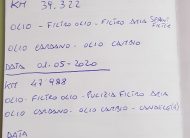 KM 39.322
OLIO - FILTRO OLIO - FILTRO ARIA SPORT FILTER
OLIO CARDANO - OLIO CAMBIO
DATA 02-05-2020
KM 47988
OLIO - FILTRO OLIO - PULIZIA FILTRO ARIA
OLIO CARDANO - OLIO CAMBIO - CANDELE(4)
DATA